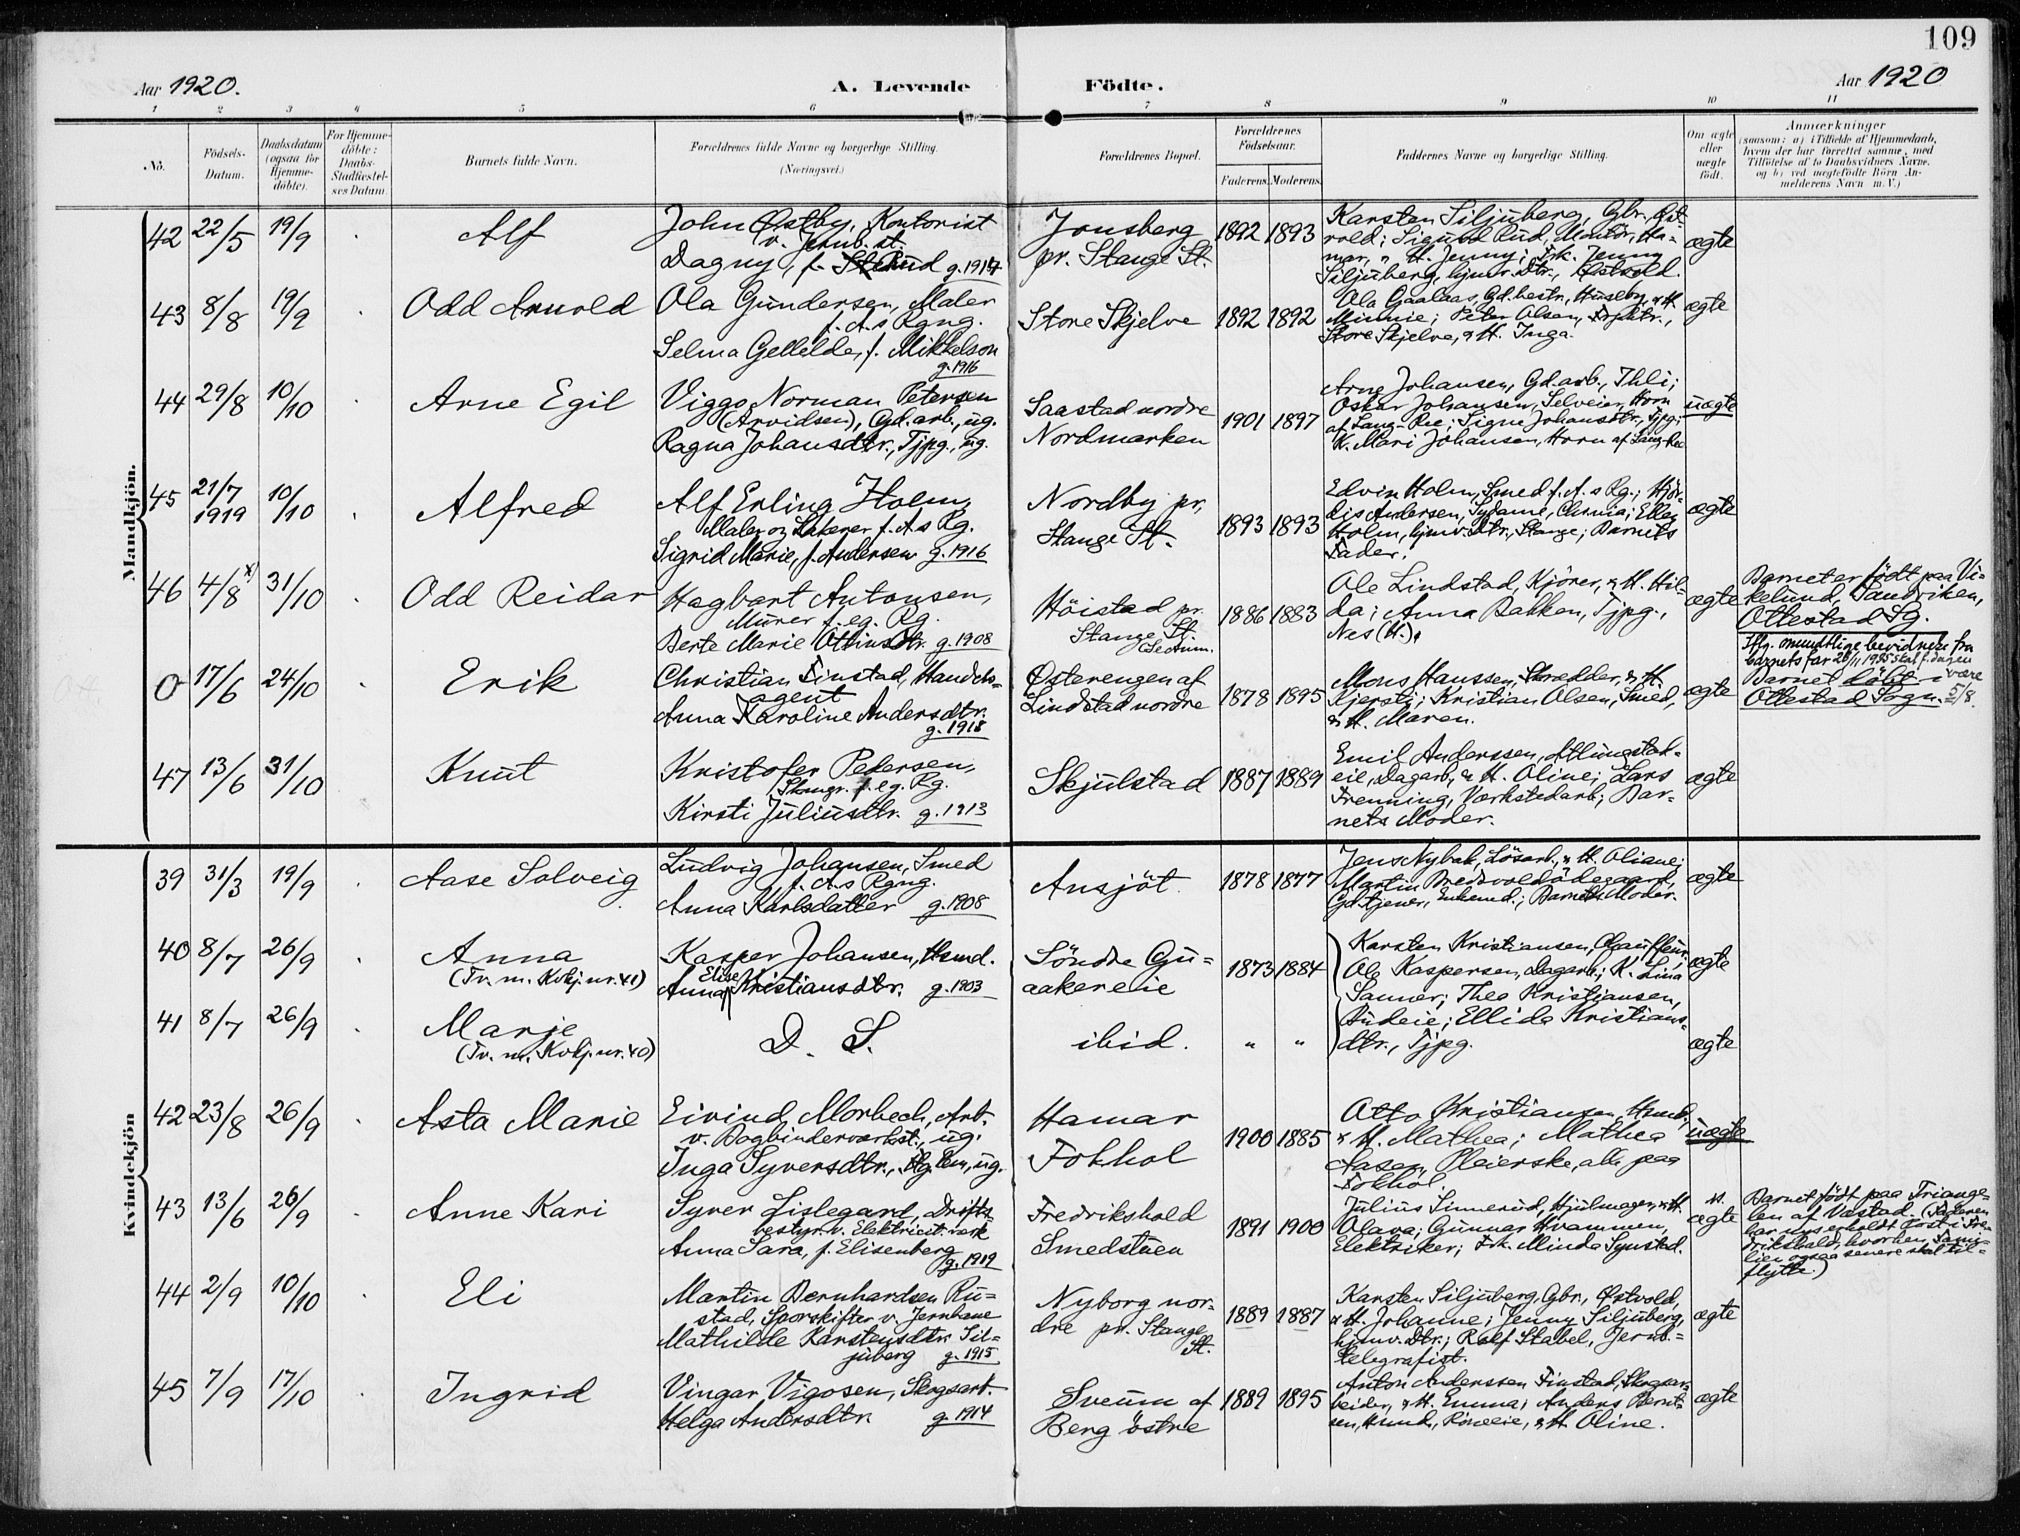 109
Aar 1920.
A. Levende Födte.
Aar 1920
1 2 3 4 5 6 7 8 9 10 11
No.
Födsels-Datum.
Daabsdatum (ogsaa for Hjemme-döbte).
For Hjemme-döbte: Daabs-Stadfæstel-ses Datum.
Barnets fulde Navn.
Forældrenes fulde Navne og borgerlige Stilling. (Næringsvei.)
Forældrenes Bopæl.
Forældrenes Födselsaar.
Faderens. Moderens.
Faddernes Navne og borgerlige Stilling.
Om ægte eller uægte födt.
Anmærkninger
(saasom: a) i Tilfælde af Hjemmedaab, hvem der har forrettet samme, med Tilföielse af to Daabsvidners Navne, og b) ved uægtefödte Börn Anmelderens Navn m. V.)
Mandkjön.
42 22/5 19/9 Alf
John Østby, Kontorist
v. Jernb. st.
Dagny, f. Rud g. 1917
Jonsberg
pr. Stange St.
1892 1893
Karsten Siljuberg, Gbr. Øst-
vold; Sigurd Rud, Montör, Ha-
mar, & H. Jenny; Frk. Jenny
Siljuberg, hjmv. Dtr., Østvold.
ægte
43 8/8 19/9 Odd Arnold
Ola Gundersen, Maler
f. A.s Rgng.
Selma Gellelde, f. Mikkelson
g. 1916
Store Skjelve
1892 1892
Ola Gaalaas, Gd.bestr., Huseby, & H.
Minnie; Peter Olsen,
Store Skjelve, & H. Inga.
ægte
44 29/8 10/10 Arne Egil
Viggo Norman Petersen
(Arvidsen), Gd.arb., ug.
Ragna Johansdtr., Tjpg., ug.
Saastad nordre
Nordmarken
1901 1897
Arne Johansen, Gd.arb., Ihli;
Oskar Johansen, Selveier, Horn
af Lang-Ree; Signe Johansdtr., Tjpg.;
K. Mari Johansen, Horn af Lang-Ree
uægte
45 21/7 1919 10/10 Alfred
Alf Erling Holm,
Maler og Lakerer f. A.s Rg.
Sigrid Marie, f. Andersen g. 1916
Nordby pr.
Stange St.
1893 1893
Edvin Holm, Smed f. A.s Rg.; Hjör-
dis Andersen, Sydame, Chrnia; Ellen
Holm, hjmv. Dtr., Stange; Barnets
Fader.
ægte
46 4/8 x) 31/10 Odd Reidar
Hagbart Antonsen,
Murer f. eg. Rg.
Berte Marie Ottinsdtr. g. 1908
Höistad pr.
Stange St.
1886 1883
Ole Lindstad, Kjörer, & H. Hil-
da; Anna Bakken, Tjpg.,
Nes (H.).
ægte
Barnet er födt paa Vi-
kelund, Sandviken,
Ottestad Sg.
Iflg. mundtlige bevidnelse fra
barnets far 26/11 1935 skal f.dagen være 5/8.
0 17/6 24/10 Erik
Christian Finstad, Handels-
agent
Anna Karoline Andersdtr.
g. 1918
Østerengen af
Lindstad nordre
1878 1895
Mons Hanssen, Skrædder, & H.
Kjersti; Kristian Olsen, Smed,
& H. Maren.
ægte
Barnet döbt i
Ottestad Sogn.
47 13/6 31/10 Knut
Kristofer Pedersen,
Skomgr. f. eg. Rg.
Kirsti Juliusdtr. g. 1913
Skjulstad
1887 1889
Emil Anderssen, Atlungstad-
eie, Dagarb., & H. Oline; Lars
Frenning, Værkstedarb.; Bar-
nets Moder.
ægte
Kvindekjön
39 31/3 19/9 Aase Solveig
Ludvig Johansen, Smed
f. A.s Rgng.
Anna Karlsdatter g. 1908
Ansjöt
1878 1877
Jens Nybak, Lösarb., & H. Oliane;
Martin Bredvoldödegaard,
Gd.tjener, Enkemd.; Barnets Moder.
ægte
40 8/7 26/9 Anna
(Tv. m. Kvkj. nr. 41)
Kasper Johansen, Hsmd.
Anna Elise Kristiansdtr. g. 1903
Söndre Gu-
aakereie
1873 1884
Karsten Kristiansen, Chauffeur;
Ole Kaspersen, Dagarb.; K. Lina
Sanner; Thea Kristiansen,
Budeie; Ellida Kristians-
dtr., Tjpg.
ægte
41 8/7 26/9 Marje
(Tv. m. Kvkj. nr. 40)
D. S.
ibid.
" "
ægte
42 23/8 26/9 Asta Marie
Eivind Morbech, Arb.
v. Bogbinderværkst., ug.
Inga Syversdtr., ug.
Hamar
Fokhol
1900 1885
Otto Kristiansen, Hsmd.,
& H. Mathea; Mathea
Aasen, Meierske, alle paa
Fokhol.
uægte
43 13/6 26/9 Anne Kari
Syver Lislegard, Drifts-
bestyr. v. Elektricit.værk
Anna Sara, f. Elisenberg
g. 1919
Fredrikshald
Smedstuen
1891 1900
Julius Sinnerud, Hjulmager, & H.
Olava; Gunnar Kvammen,
Elektriker; Frk. Minda Synstad.
ægte
Barnet födt paa Triange-
len af Vastad. (Faderen
har nys erholdt Post i Fre-
drikshald, hvorhen Fami-
lien ogsaa senere skal til-
flytte.)
44 2/9 10/10 Eli
Martin Bernhardsen Ru-
stad, Sporskifter v. Jernbane
Mathilde Karstensdtr. Sil-
juberg g. 1915
Nyborg nor-
dre pr. Stange
St.
1889 1887
Karsten Siljuberg, Gbr., Østvold,
& H. Johanne; Jenny Siljuberg,
hjmv. Dtr.; Rolf Stabel, Jernb.-
telegrafist.
ægte
45 7/9 17/10 Ingrid
Vingar Vigosen, Skogsarb.
Helga Andersdtr. g. 1914
Sveum af
Berg östre
1889 1895
Anton Anderssen Finstad, Skogsar-
beider, & H. Emma; Anders Bernt-
sen, Hsmd., & H. Oline.
ægte